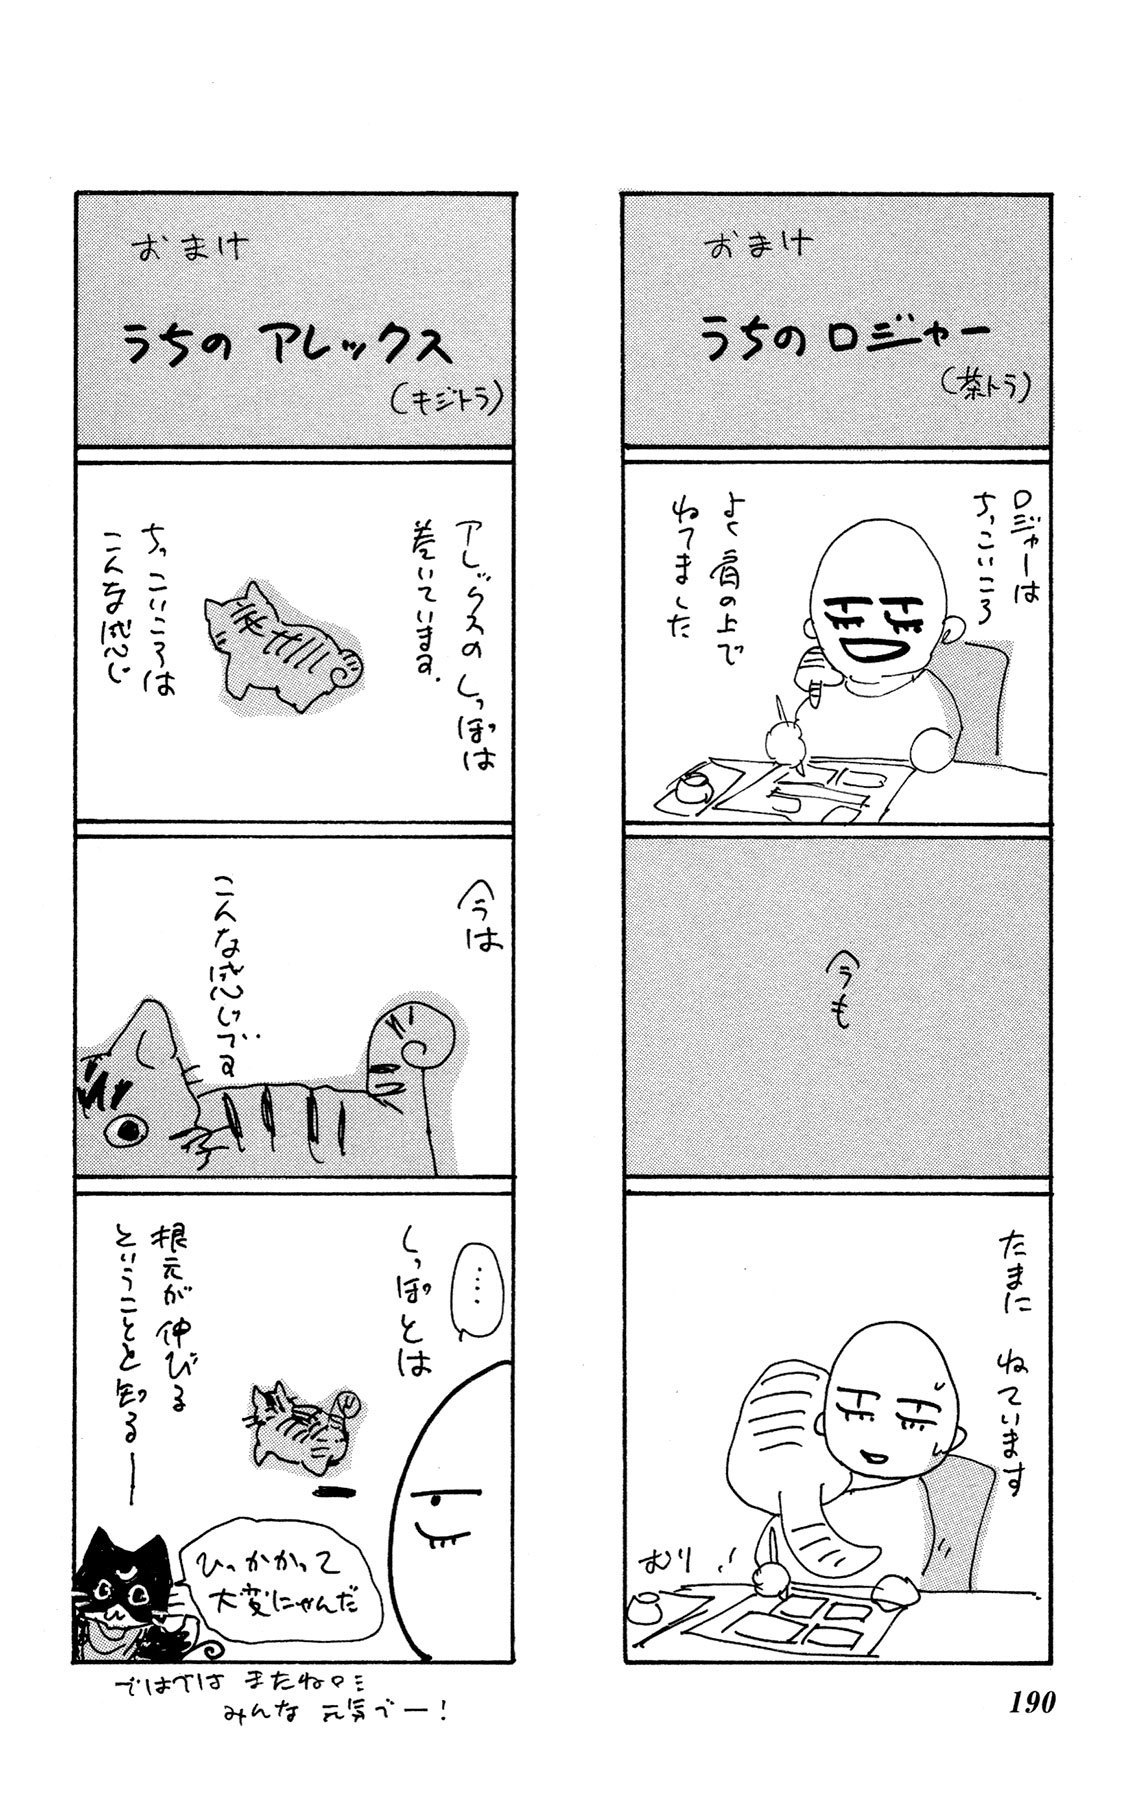 おまけ
うちのロジャー
(茶トラ)
ロジャーは
ちっこいころ
よく肩の上で
ねてました
今も
たまに ねています
むり…
おまけ
うちの アレックス
(キジトラ)
アレックスの しっぽは
巻いています。
ちっこいころは
こんな感じ
今は
こんな感じです
‥‥
しっぽとは
根元が 伸びる
ということを知るー
ひっかかって
大変にゃんだ
ではでは またね。
みんな 元気でー!
190